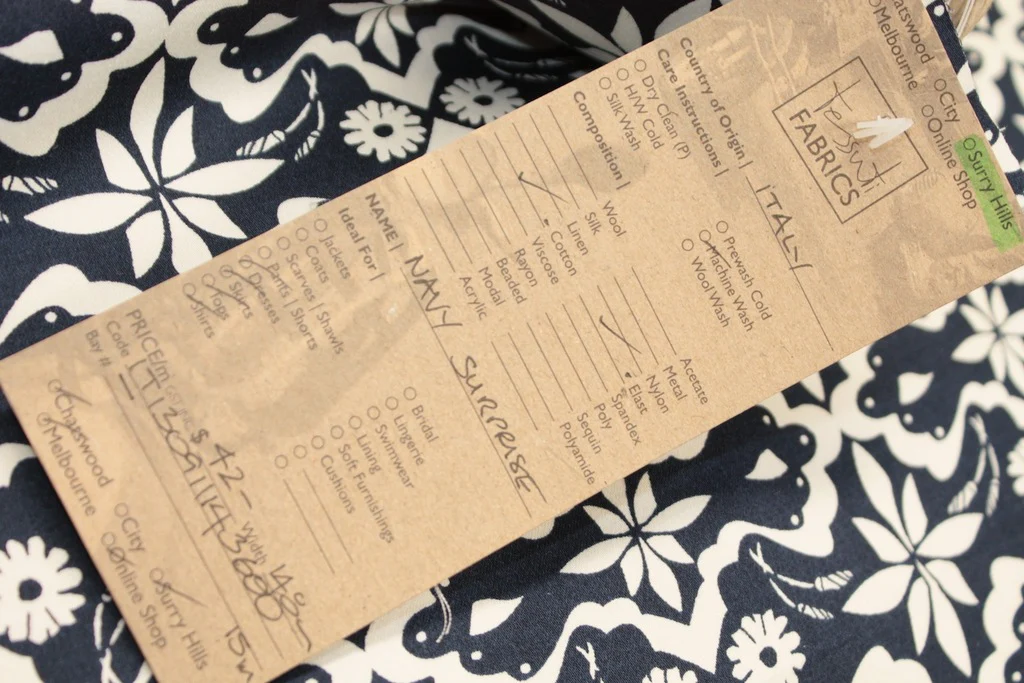 atswood
Melbourne
City
Online Shop
Surry Hills
tessuti
FABRICS
Country of Origin | ITALY
Care Instructions |
Dry Clean (P)
H/W Cold
Silk Wash
Prewash Cold
Machine Wash
Wool Wash
Composition |
Wool
Silk
Linen
Cotton
Viscose
Rayon
Beaded
Modal
Acrylic
Acetate
Metal
Nylon
Elast
Spandex
Poly
Sequin
Polyamide
NAME | NAVY SURPRISE
Ideal For |
Jackets
Coats
Scarves | Shawls
Pants | Shorts
Dresses
Skirts
Tops
Shirts
Bridal
Lingerie
Swimwear
Lining
Soft Furnishings
Cushions
PRICE/m GST INC $ 42- Width 148m
Code
Bay # 15m
Chatswood
Melbourne
City
Online Shop
Surry Hills